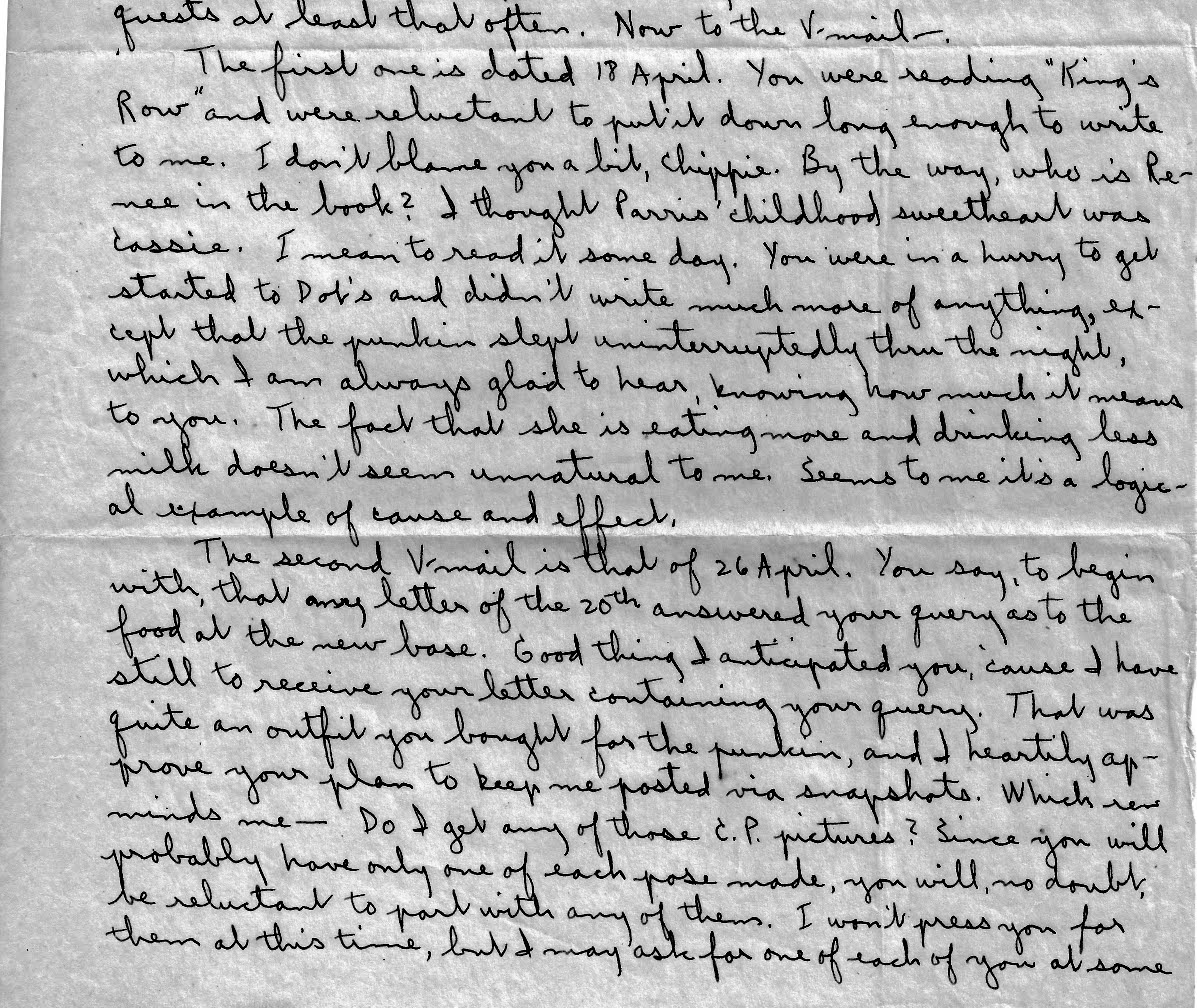 quests at least that often. Now to the V-mail—.
The first one is dated 18 April. You were reading "King's
Row" and were reluctant to put it down long enough to write
to me. I don't blame you a bit, Chippie. By the way, who is Re-
nee in the book? I thought Parris' childhood sweetheart was
Cassie. I mean to read it some day. You were in a hurry to get
started to Dot's and didn't write much more of anything, ex-
cept that the punkin slept uninterruptedly thru the night,
which I am always glad to hear, knowing how much it means
to you. The fact that she is eating more and drinking less
milk doesn't seem unnatural to me. Seems to me it's a logic-
al example of cause and effect.
The second V-mail is that of 26 April. You say, to begin
with, that my letter of the 20th answered your query as to the
food at the new base. Good thing I anticipated you, 'cause I have
still to receive your letter containing your query. That was
quite an outfit you bought for the punkin, and I heartily ap-
prove your plan to keep me posted via snapshots. Which re-
minds me— Do I get any of those C.P. pictures? Since you will
probably have only one of each pose made, you will, no doubt,
be reluctant to part with any of them. I won't press you for
them at this time, but I may ask for one of each of you at some